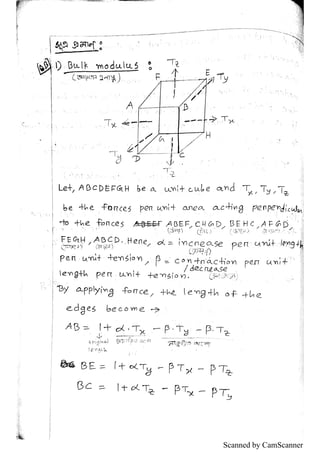 1) Bulk modulus :
Tz
F E Ty
A B
Tx Tx
G H
D C
Ty
Tz
Let, ABCDEFGH be a unit cube and Tx, Ty, Tz
be the forces per unit area acting perpendicular
to the forces ABEF, CHGD, BEHC, AFGD,
FEGH, ABCD. Here, α = increase per unit length
per unit tension, β = contraction per unit
/decrease
length per unit tension.
By applying force, the length of the
edges become →
AB = 1 + α.Tx - β.Ty - β.Tz
original
length
BE = 1 + αTy - βTx - βTz
BC = 1 + αTz - βTx - βTy
Scanned by CamScanner